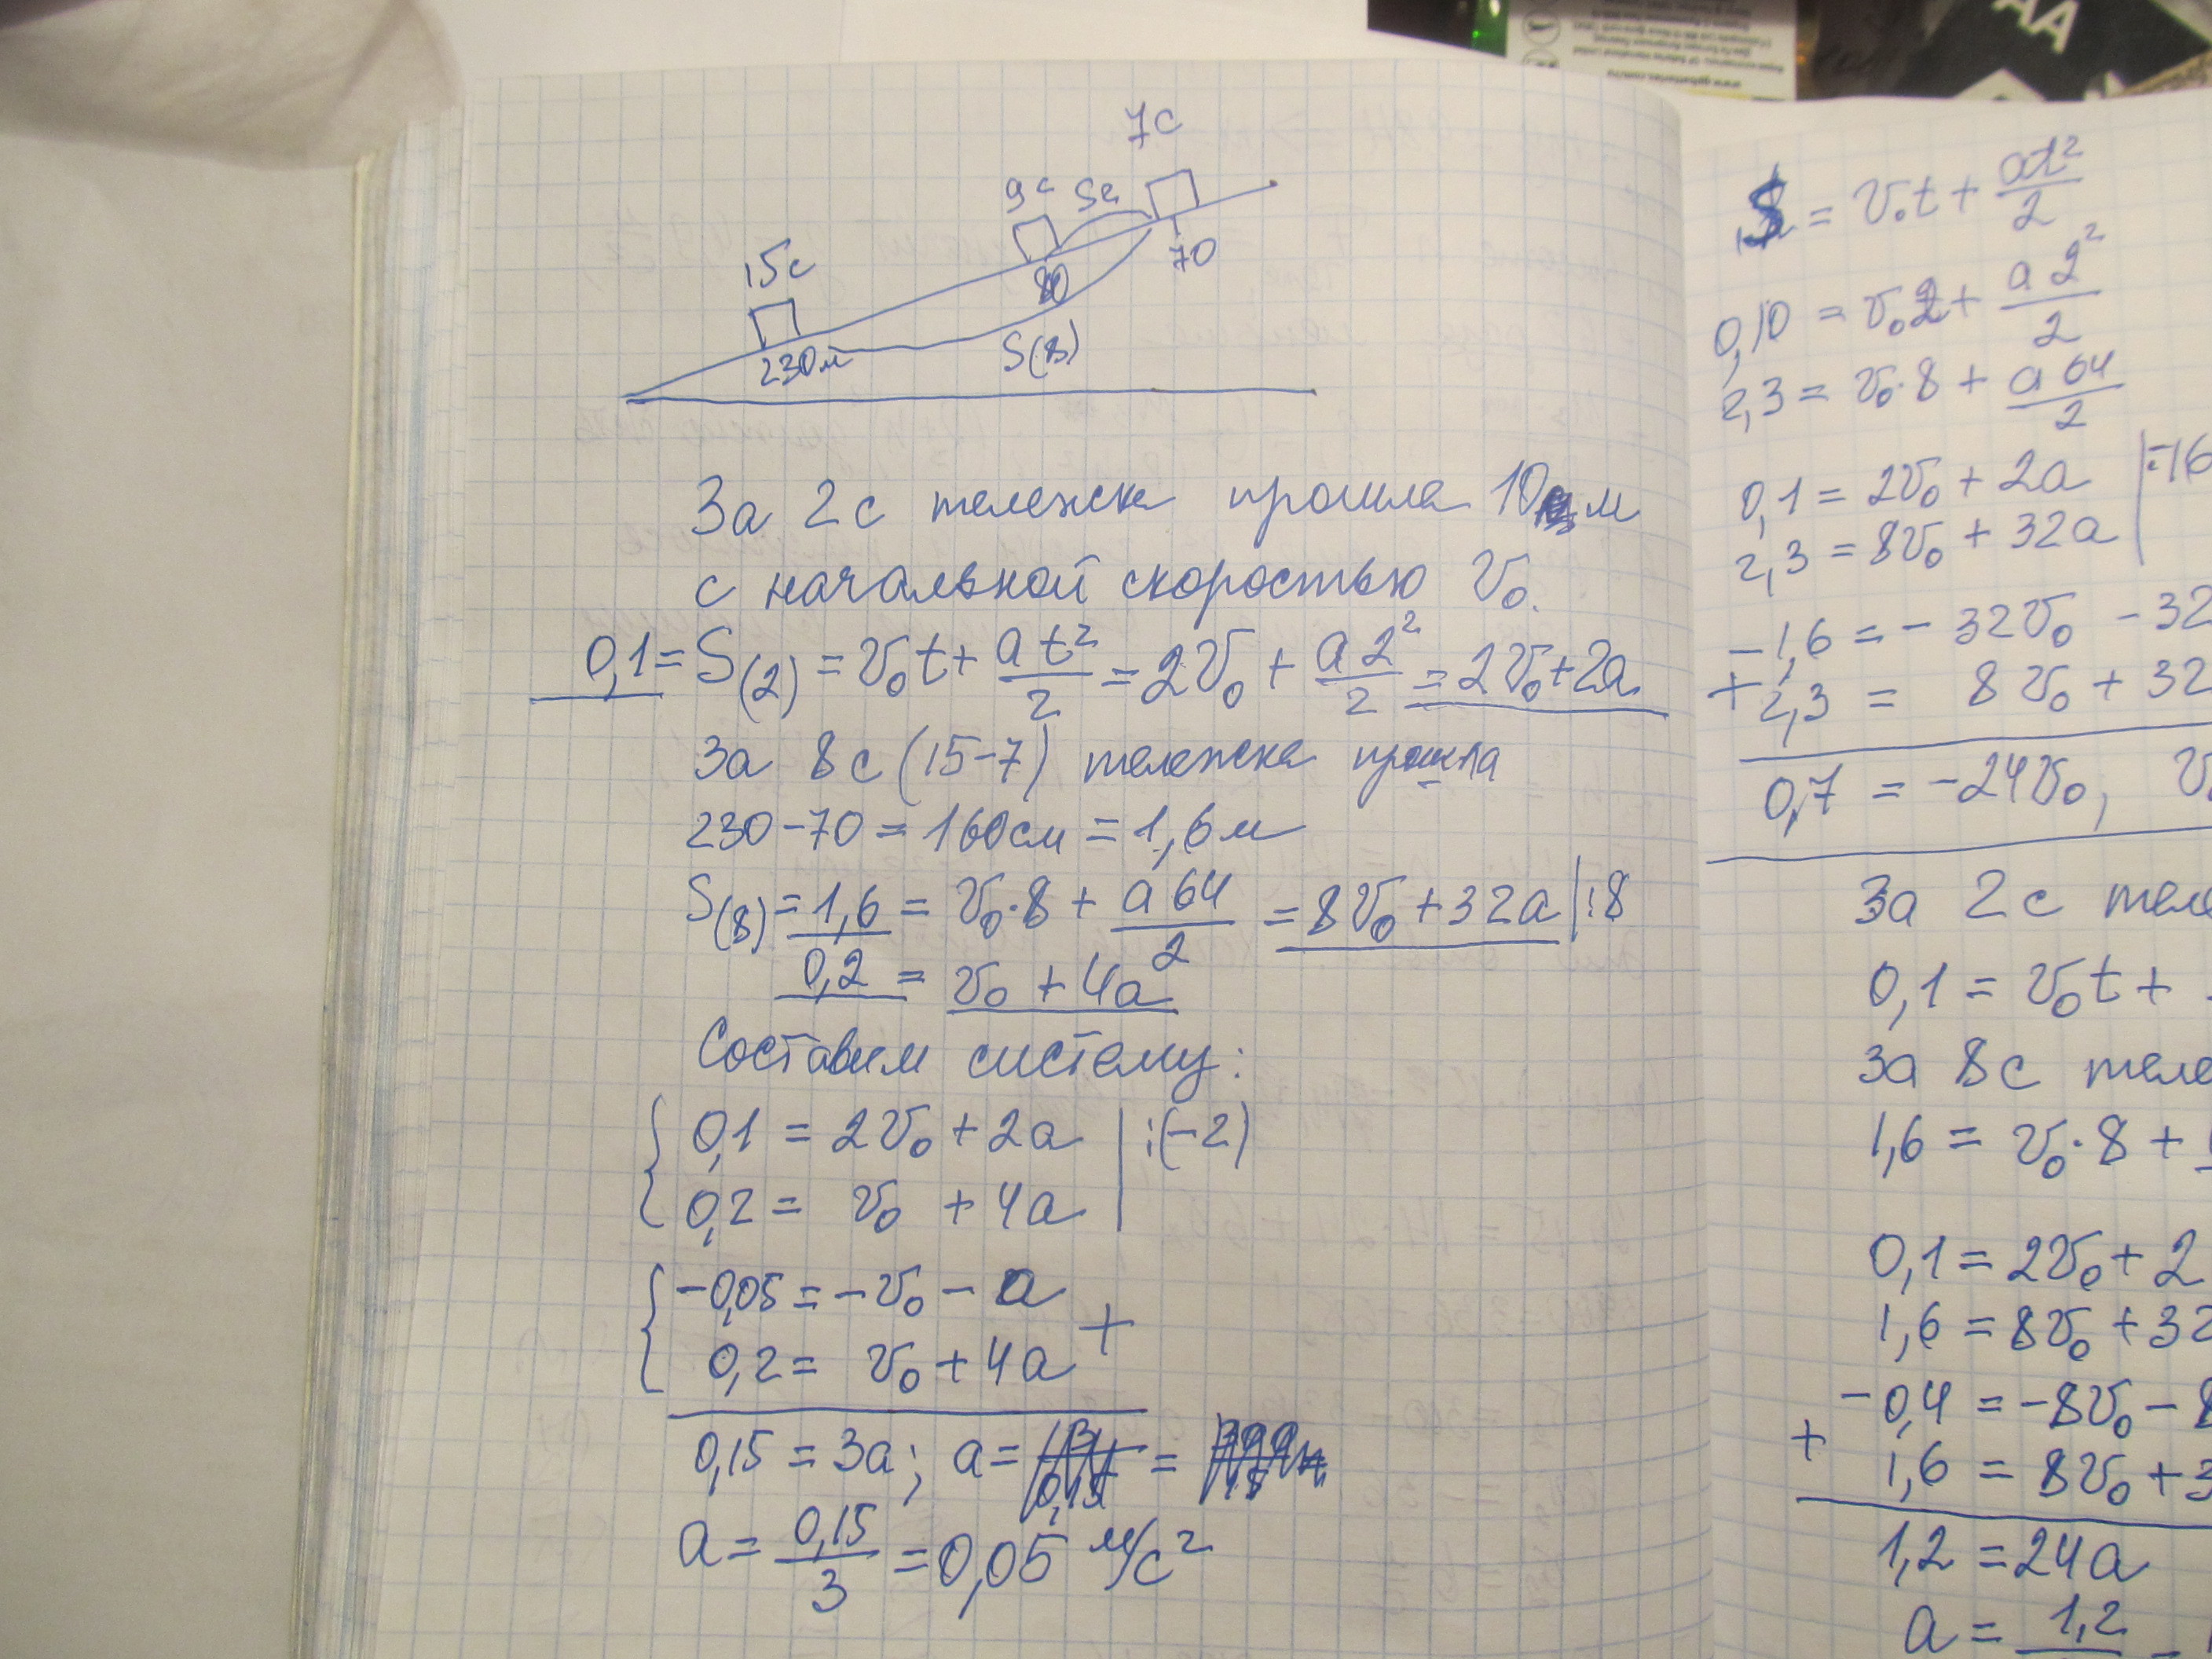 7с
9с 5с
15с
70
80
230м
S(8)
За 2с тележка прошла 10 м
с начальной скоростью v₀.
0,1 = S(2) = v₀t + at²/2 = 2v₀ + a2²/2 = 2v₀+2a
За 8с (15-7) тележка прошла
230-70 = 160см = 1,6м
S(8) = 1,6 = v₀·8 + a64/2 = 8v₀+32a |:8
0,2 = v₀ + 4a
Составим систему:
0,1 = 2v₀ + 2a |:(-2)
0,2 = v₀ + 4a
-0,05 = -v₀ - a
+
0,2 = v₀ + 4a
0,15 = 3a; a= =
a = 0,15/3 = 0,05 м/с²
S = v₀t + at²/2
0,10 = v₀2 + a2²/2
2,3 = v₀·8 + a64/2
0,1 = 2v₀ + 2a |·-16
2,3 = 8v₀ + 32a
-1,6 = -32v₀ - 32
+ 2,3 = 8v₀ + 32
0,7 = -24v₀, v₀
За 2с теле
0,1 = v₀t +
За 8с теле
1,6 = v₀·8 +
0,1 = 2v₀ + 2
1,6 = 8v₀ + 32
-0,4 = -8v₀ - 8
+ 1,6 = 8v₀ + 3
1,2 = 24a
a = 1,2
AA